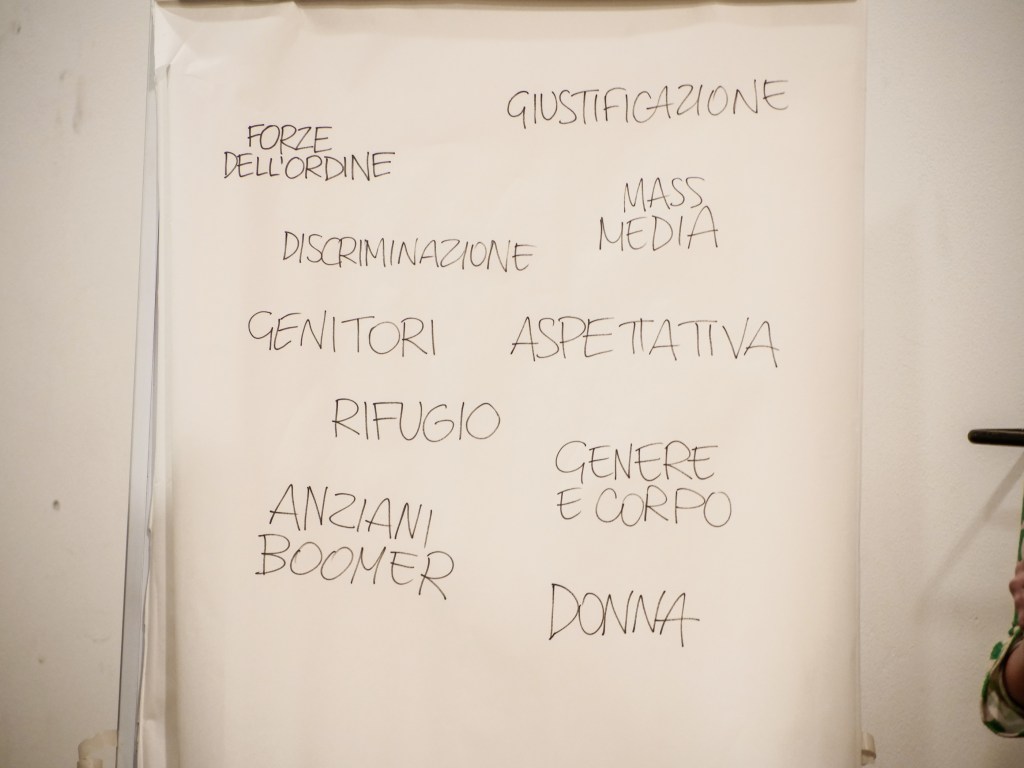 GIUSTIFICAZIONE
FORZE
DELL'ORDINE
MASS
MEDIA
DISCRIMINAZIONE
GENITORI
ASPETTATIVA
RIFUGIO
GENERE
E CORPO
ANZIANI
BOOMER
DONNA